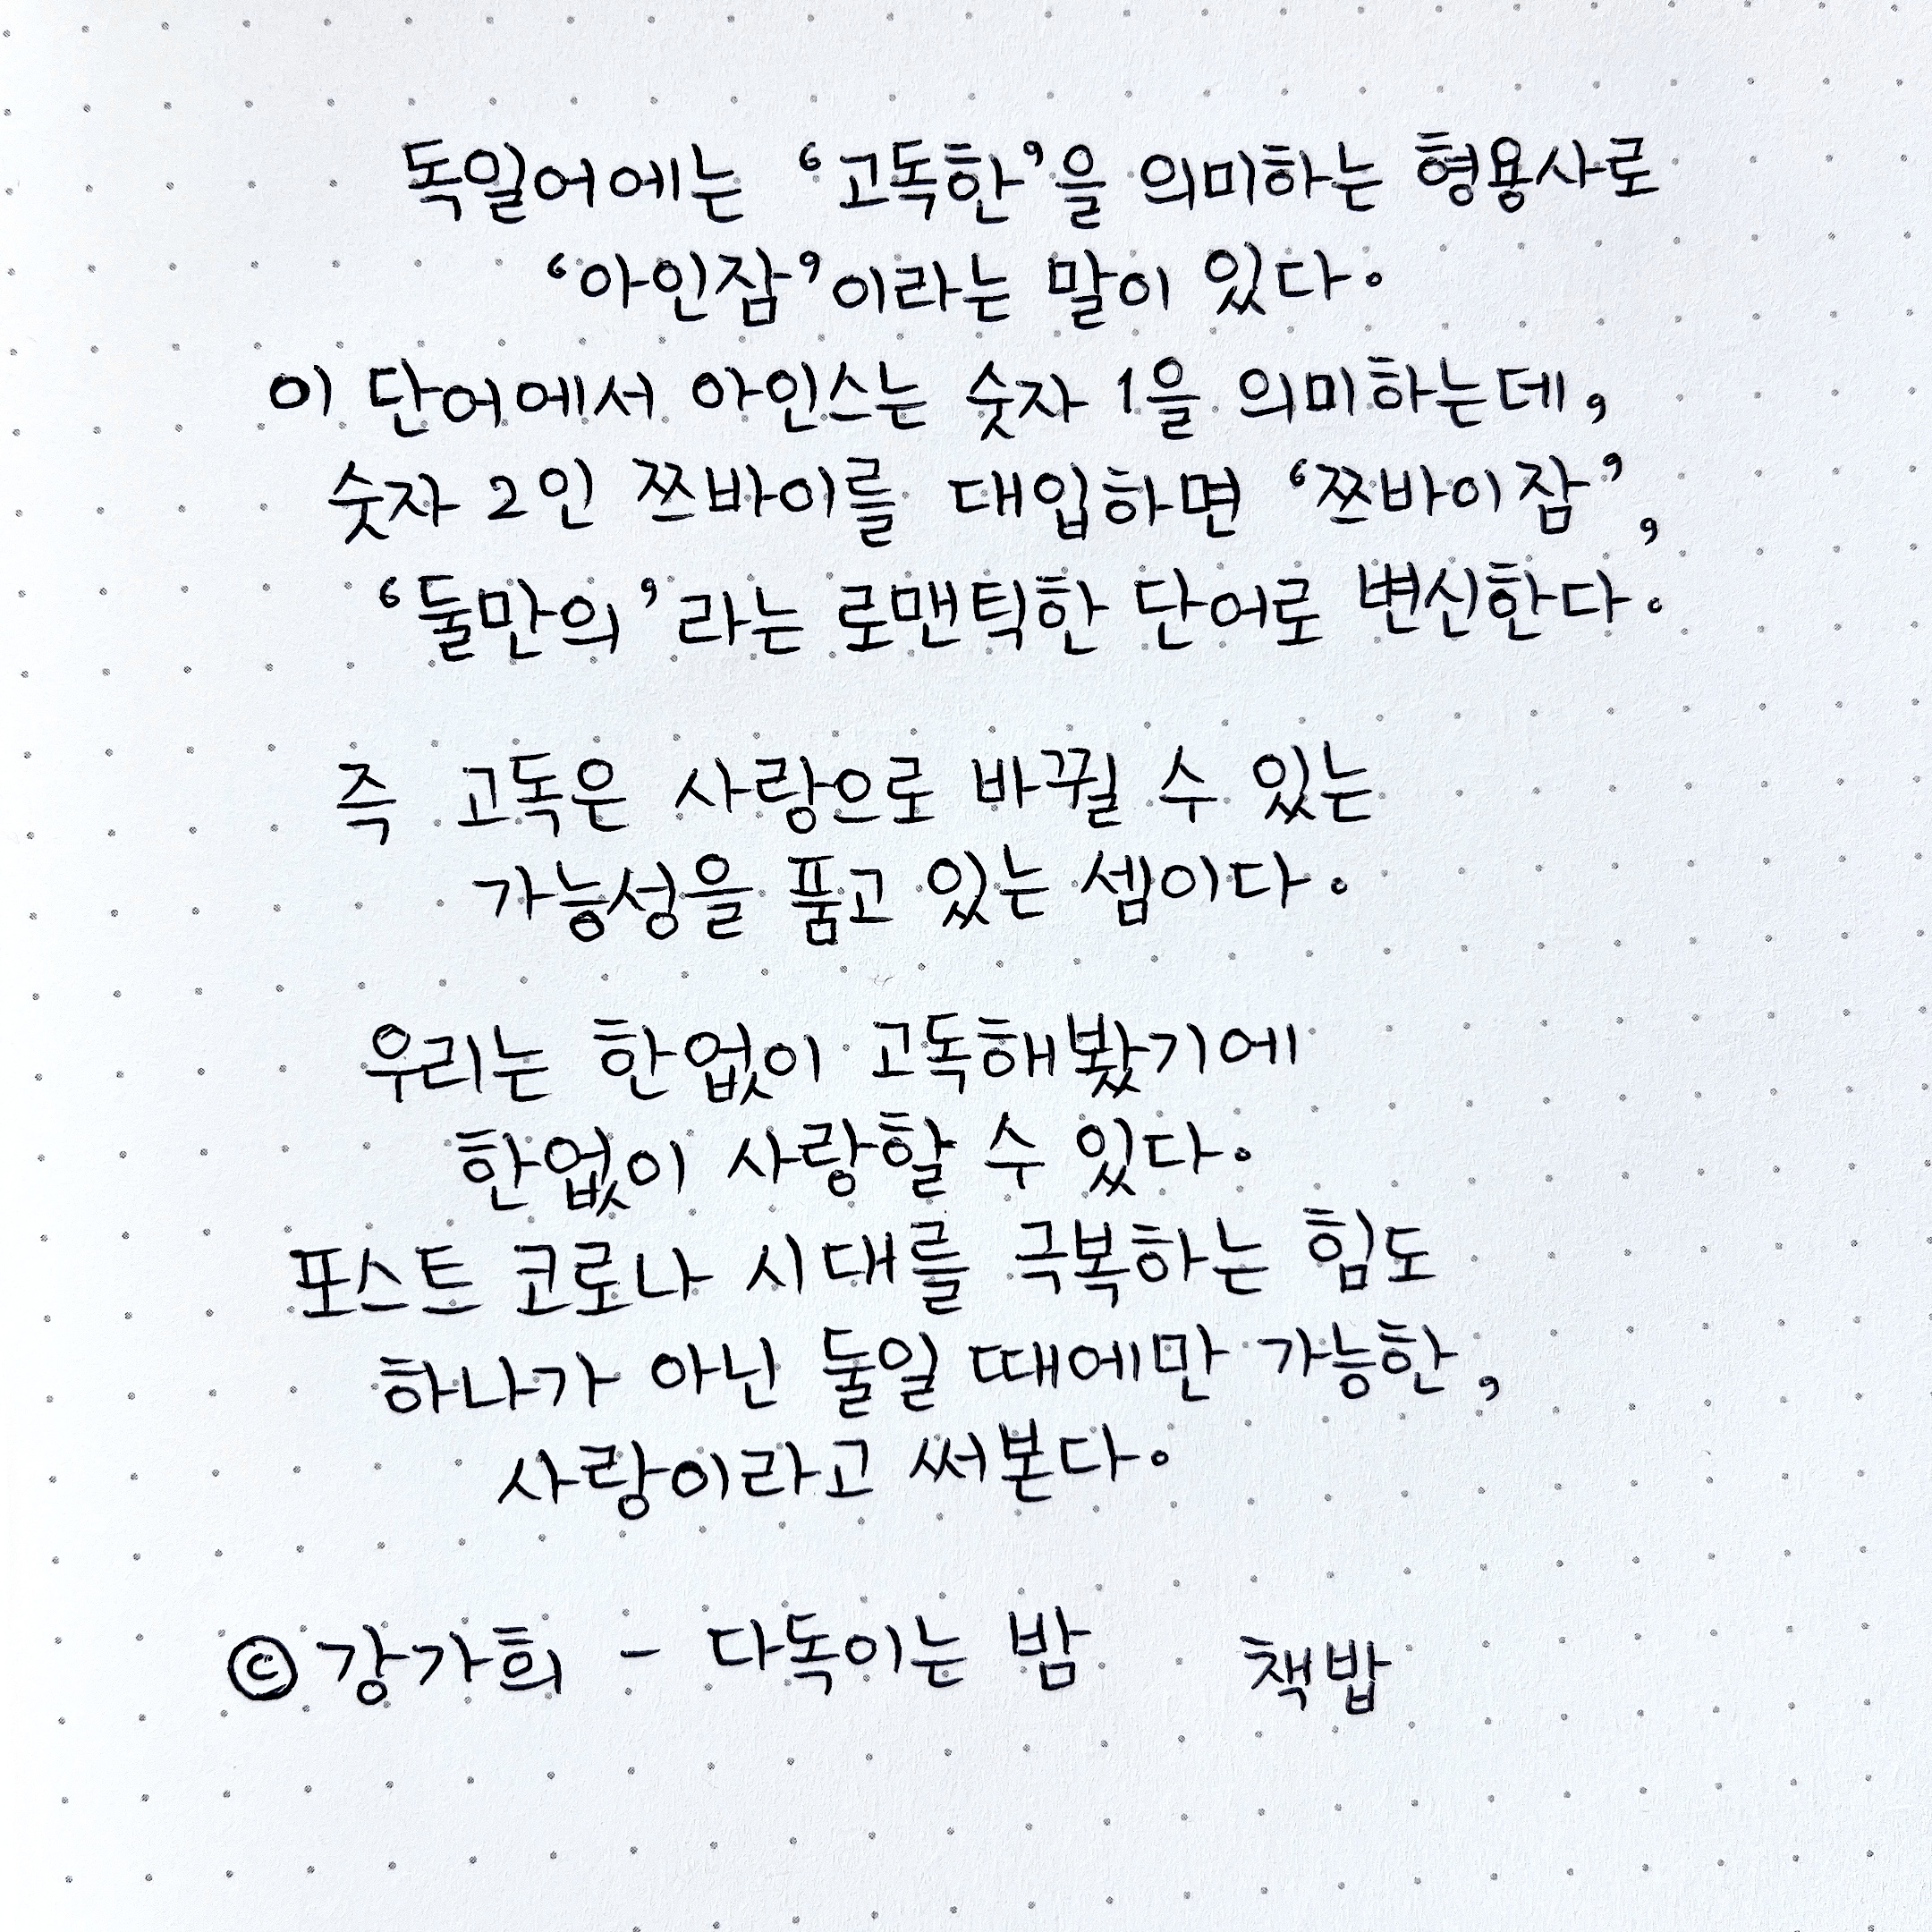 독일어에는 ‘고독한’을 의미하는 형용사로
‘아인잠’이라는 말이 있다.
이 단어에서 아인스는 숫자 1을 의미하는데,
숫자 2인 쯔바이를 대입하면 ‘쯔바이잠’,
‘둘만의’라는 로맨틱한 단어로 변신한다.
즉 고독은 사랑으로 바뀔 수 있는
가능성을 품고 있는 셈이다.
우리는 한없이 고독해봤기에
한없이 사랑할 수 있다.
포스트 코로나 시대를 극복하는 힘도
하나가 아닌 둘일 때에만 가능한,
사랑이라고 써본다.
© 강가희 - 다독이는 밤 책밥